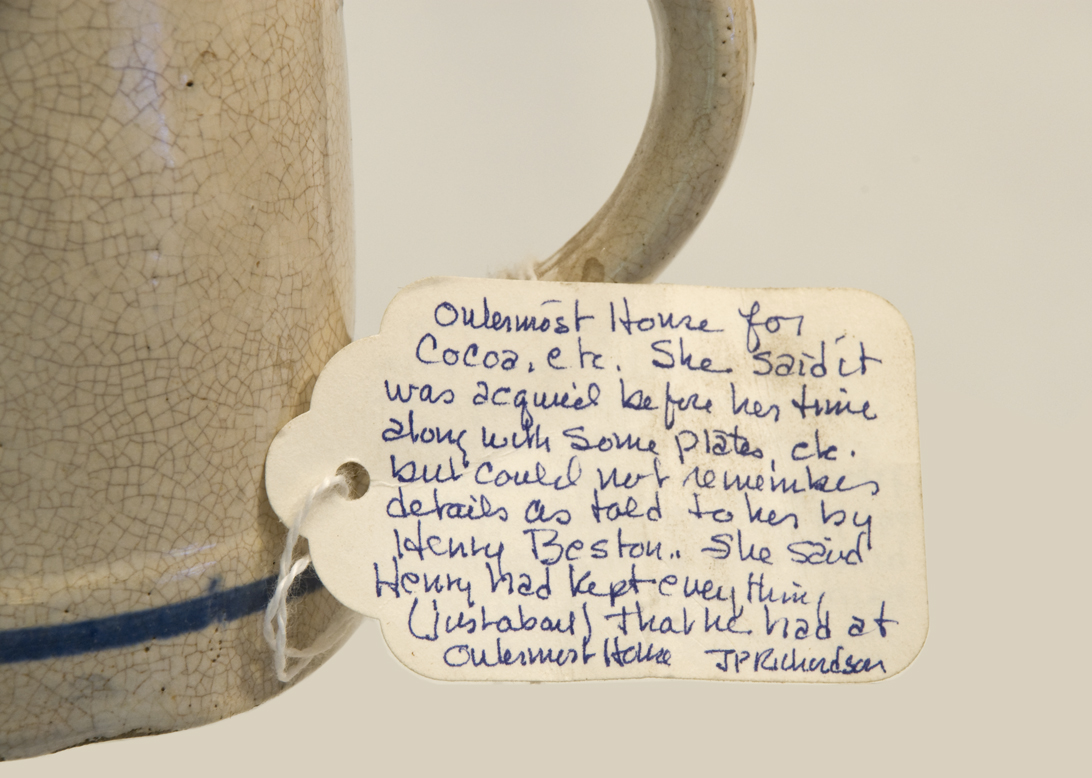 Outermost House for
Cocoa, etc. She said it
was acquired before her time
along with some plates, etc.
but could not remember
details as told to her by
Henry Beston.. She said
Henry had kept everything
(just about) that he had at
Outermost House JP Richardson